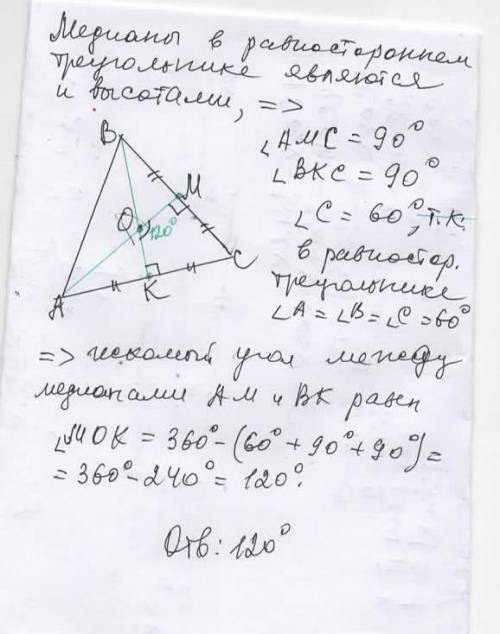 Медианы в равностороннем
треугольнике являются
и высотами, =>
∠AMC = 90°
∠BKC = 90°
∠C = 60°, т.к.
в равностор.
треугольнике
∠A = ∠B = ∠C = 60°
B
M
O
120°
C
K
A
=> искомый угол между
медианами AM и BK равен
∠MOK = 360° - (60° + 90° + 90°) =
= 360° - 240° = 120°.
Отв: 120°